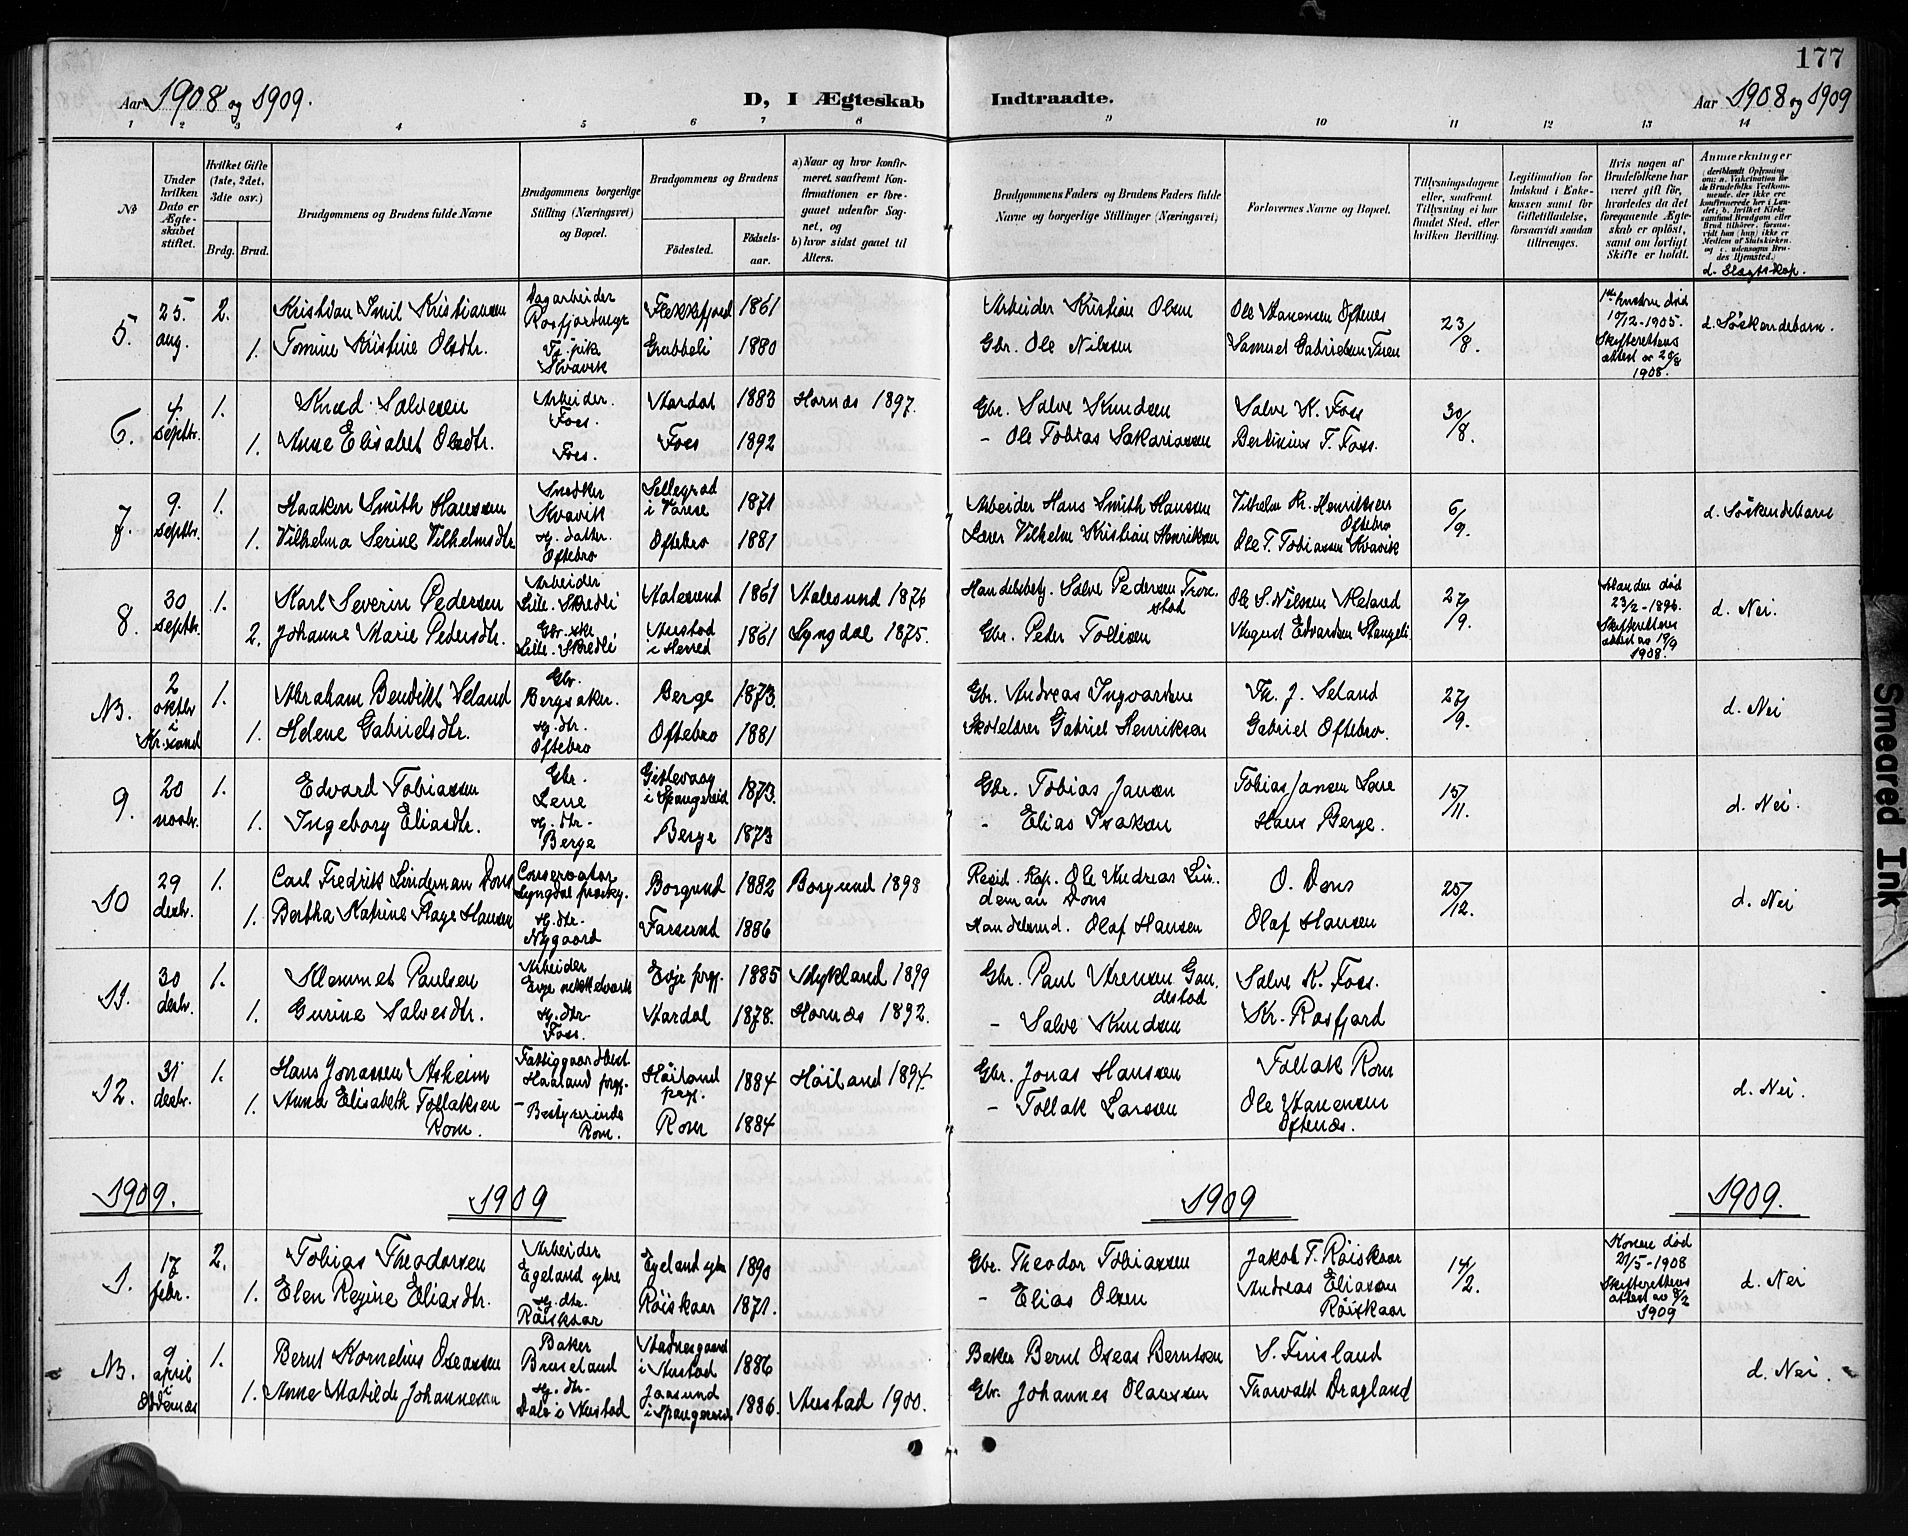 177
Aar 1908 og 1909.
D, I Ægteskab Indtraadte.
Aar 1908 og 1909
1 2 3 4 5 6 7 8 9 10 11 12 13 14
No
Under hvilken Dato er Ægteskabet stiftet.
Hvilket Gifte (1ste, 2det, 3die osv.)
Brdg. Brud.
Brudgommens og Brudens fulde Navne
Brudgommens borgerlige Stilling (Næringsvei) og Bopæl.
Brudgommens og Brudens
Fødested. Fødselsaar.
a) Naar og hvor konfirmeret, saafremt Konfirmationen er foregaaet udenfor Sognet, og
b) hvor sidst gaaet til Alters.
Brudgommens Faders og Brudens Faders fulde Navne og borgerlige Stillinger (Næringsvei)
Forlovernes Navne og Bopæl.
Tillysningsdagene eller, saafremt Tillysning ei har fundet Sted, efter hvilken Bevilling.
Legitimation for Indskud i Enkekassen samt for Giftetilladelse, forsaavidt saadan tiltrænges.
Hvis nogen af Brudefolkene har været gift før, hvorledes da det foregaaende Ægteskab er opløst, samt om lovligt Skifte er holdt.
Anmerkninger
d. Slegtskap.
5. 25. aug. 2. Kristian Emil Kristiansen Flekkefjord 1861 Arbeider Kristian Olsen Ole Hanensen Oftenes 23/8. 1ste hustru død 10/12-1905. Skifterettens attest av 20/8 1908. d. Søskendebarn.
1. Tomine Kristine Olsdtr. Tj. pike Kvavik Grubbeli 1880 Gbr. Ole Nilssen Samuel Gabrielsen
6. 4. septbr. 1. Knud Salvesen Arbeider. Foss. Aardal 1883 Hornæs 1897. Gbr. Salve Knudsen Salve K. Foss 30/8.
1. Anne Elisabet Olsdtr. Foss. Foss 1892 - Ole Tobias Sakariassen Bertinius T. Foss.
7. 9. septbr. 1. Haakon Smith Hanssen Snedker Kvavik i Vanse 1871 Arbeider Hans Smith Hanssen Vilhelm Kr. Henriksen Oftebro 6/9. d. Søskendebarn
1. Vilhelma Serine Vilhelmsdtr. hj. datter. Oftebro Oftebro 1881 Lærer Vilhelm Kristian Henriksen Ole T. Tobiassen Kvavik
8. 30 septbr. 1. Karl Severin Pedersen Arbeider Lille-Skredli Aalesund 1861 Aalesund 1876 Handelsbetj. Salve Pedersen Ole S. Nilssen 27/9. Manden død 23/2-1896. Skifterettens attest av 19/9 1908. d. Nei.
2. Johanne Marie Pedersdtr. Gbr.ske Lille-Skredli Austad i Herred 1861 Lyngdal 1875. Gbr. Peter Tollisen August Edvardsen Stangeli
N3. 2 oktbr i Kr.sand 1. Abraham Bendikt Seland Gbr. Bergsaker. Berge 1873. Gbr. Andreas Ingvardsen Th. J. Seland 27/9. d. Nei
1. Helene Gabrielsdtr. hj. dtr. Oftebro Oftebro 1881 Skolelærer Gabriel Henriksen Gabriel Oftebro.
9. 20 novbr. 1. Edvard Tobiassen Gbr. Lene i Spangereid 1873. Gbr. Tobias Jansen Tobias Jansen Lene 15/11. d. Nei.
1. Ingeborg Eliasdtr. hj. dtr. Berge Berge 1873 - Elias Isaksen Hans Berge.
10 29 decbr. 1. Carl Fredrik Lindeman Dons Conservator Lyngdal præstg. Borgund 1882 Borgund 1898 Resid. Kap. Ole Andreas Lindeman Dons O. Dons 25/12. d. Nei
1. Bertha Katrine Flage Hansen hj. dtr. Nygaard Farsund 1886 Handelsmd. Olaf Hansen Olaf Hansen
11. 30 decbr. 1. Klemmet Paulsen Arbeider Evje nikkelverk Evje prgj. 1885 Mykland 1899 Gbr. Paul Arensen Gaudestad Salve K. Foss.
1. Gurine Salvesdtr. hj. dtr Foss. Aardal 1878. Hornæs 1892. - Salve Knudsen Kr. Rosfjord
12. 31 decbr. 1. Hans Jonassen Askeim Haaland prgj. Høiland prgj. 1884 Høiland 1894. Gbr. Jonas Hanssen Tollak Rom d. Nei.
1. Anna Elisabeth Tollaksen Rom. - Bestyrerinde Rom. Rom 1884 - Tollak Larssen Ole Hanensen Oftenæs.
1909. 1909 1909 1909.
1. 17 febr. 2. Tobias Theodorsen Arbeider Egeland ytre Egeland ytre 1890 Gbr. Theodor Tobiassen Jakob T. Røiskaar 14/2. Konen død 21/5-1908 Skifterettens attest av 8/2 1909 d. Nei
1. Elen Regine Eliasdtr. hj. dtr. Røiskaar Røiskaar 1871. - Elias Olsen Andreas Eliassen Røiskaar
N3. 9 april i Oddernæs 1. Bernt Kornelius Oseassen Baker Bruseland i Austad 1886 Baker Bernt Oseas Berntsen S. Finsland d. Nei.
1. Anne Matilde Johannesen hj. dtr. Dale i Austad Jaasund i Spangereid 1886. Austad 1900. Gbr. Johannes Olaussen Thorvald Dragland
Smeared Ink